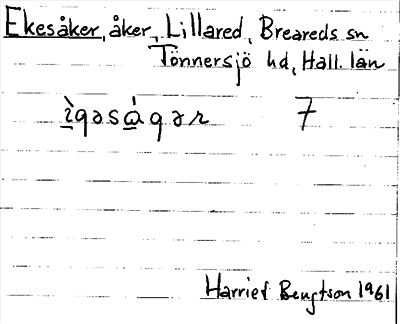 Ekesåker, åker, Lillared, Breareds sn
Tönnersjö hd, Hall. län
ìgəsàgər 7
Harriet Bengtson 1961